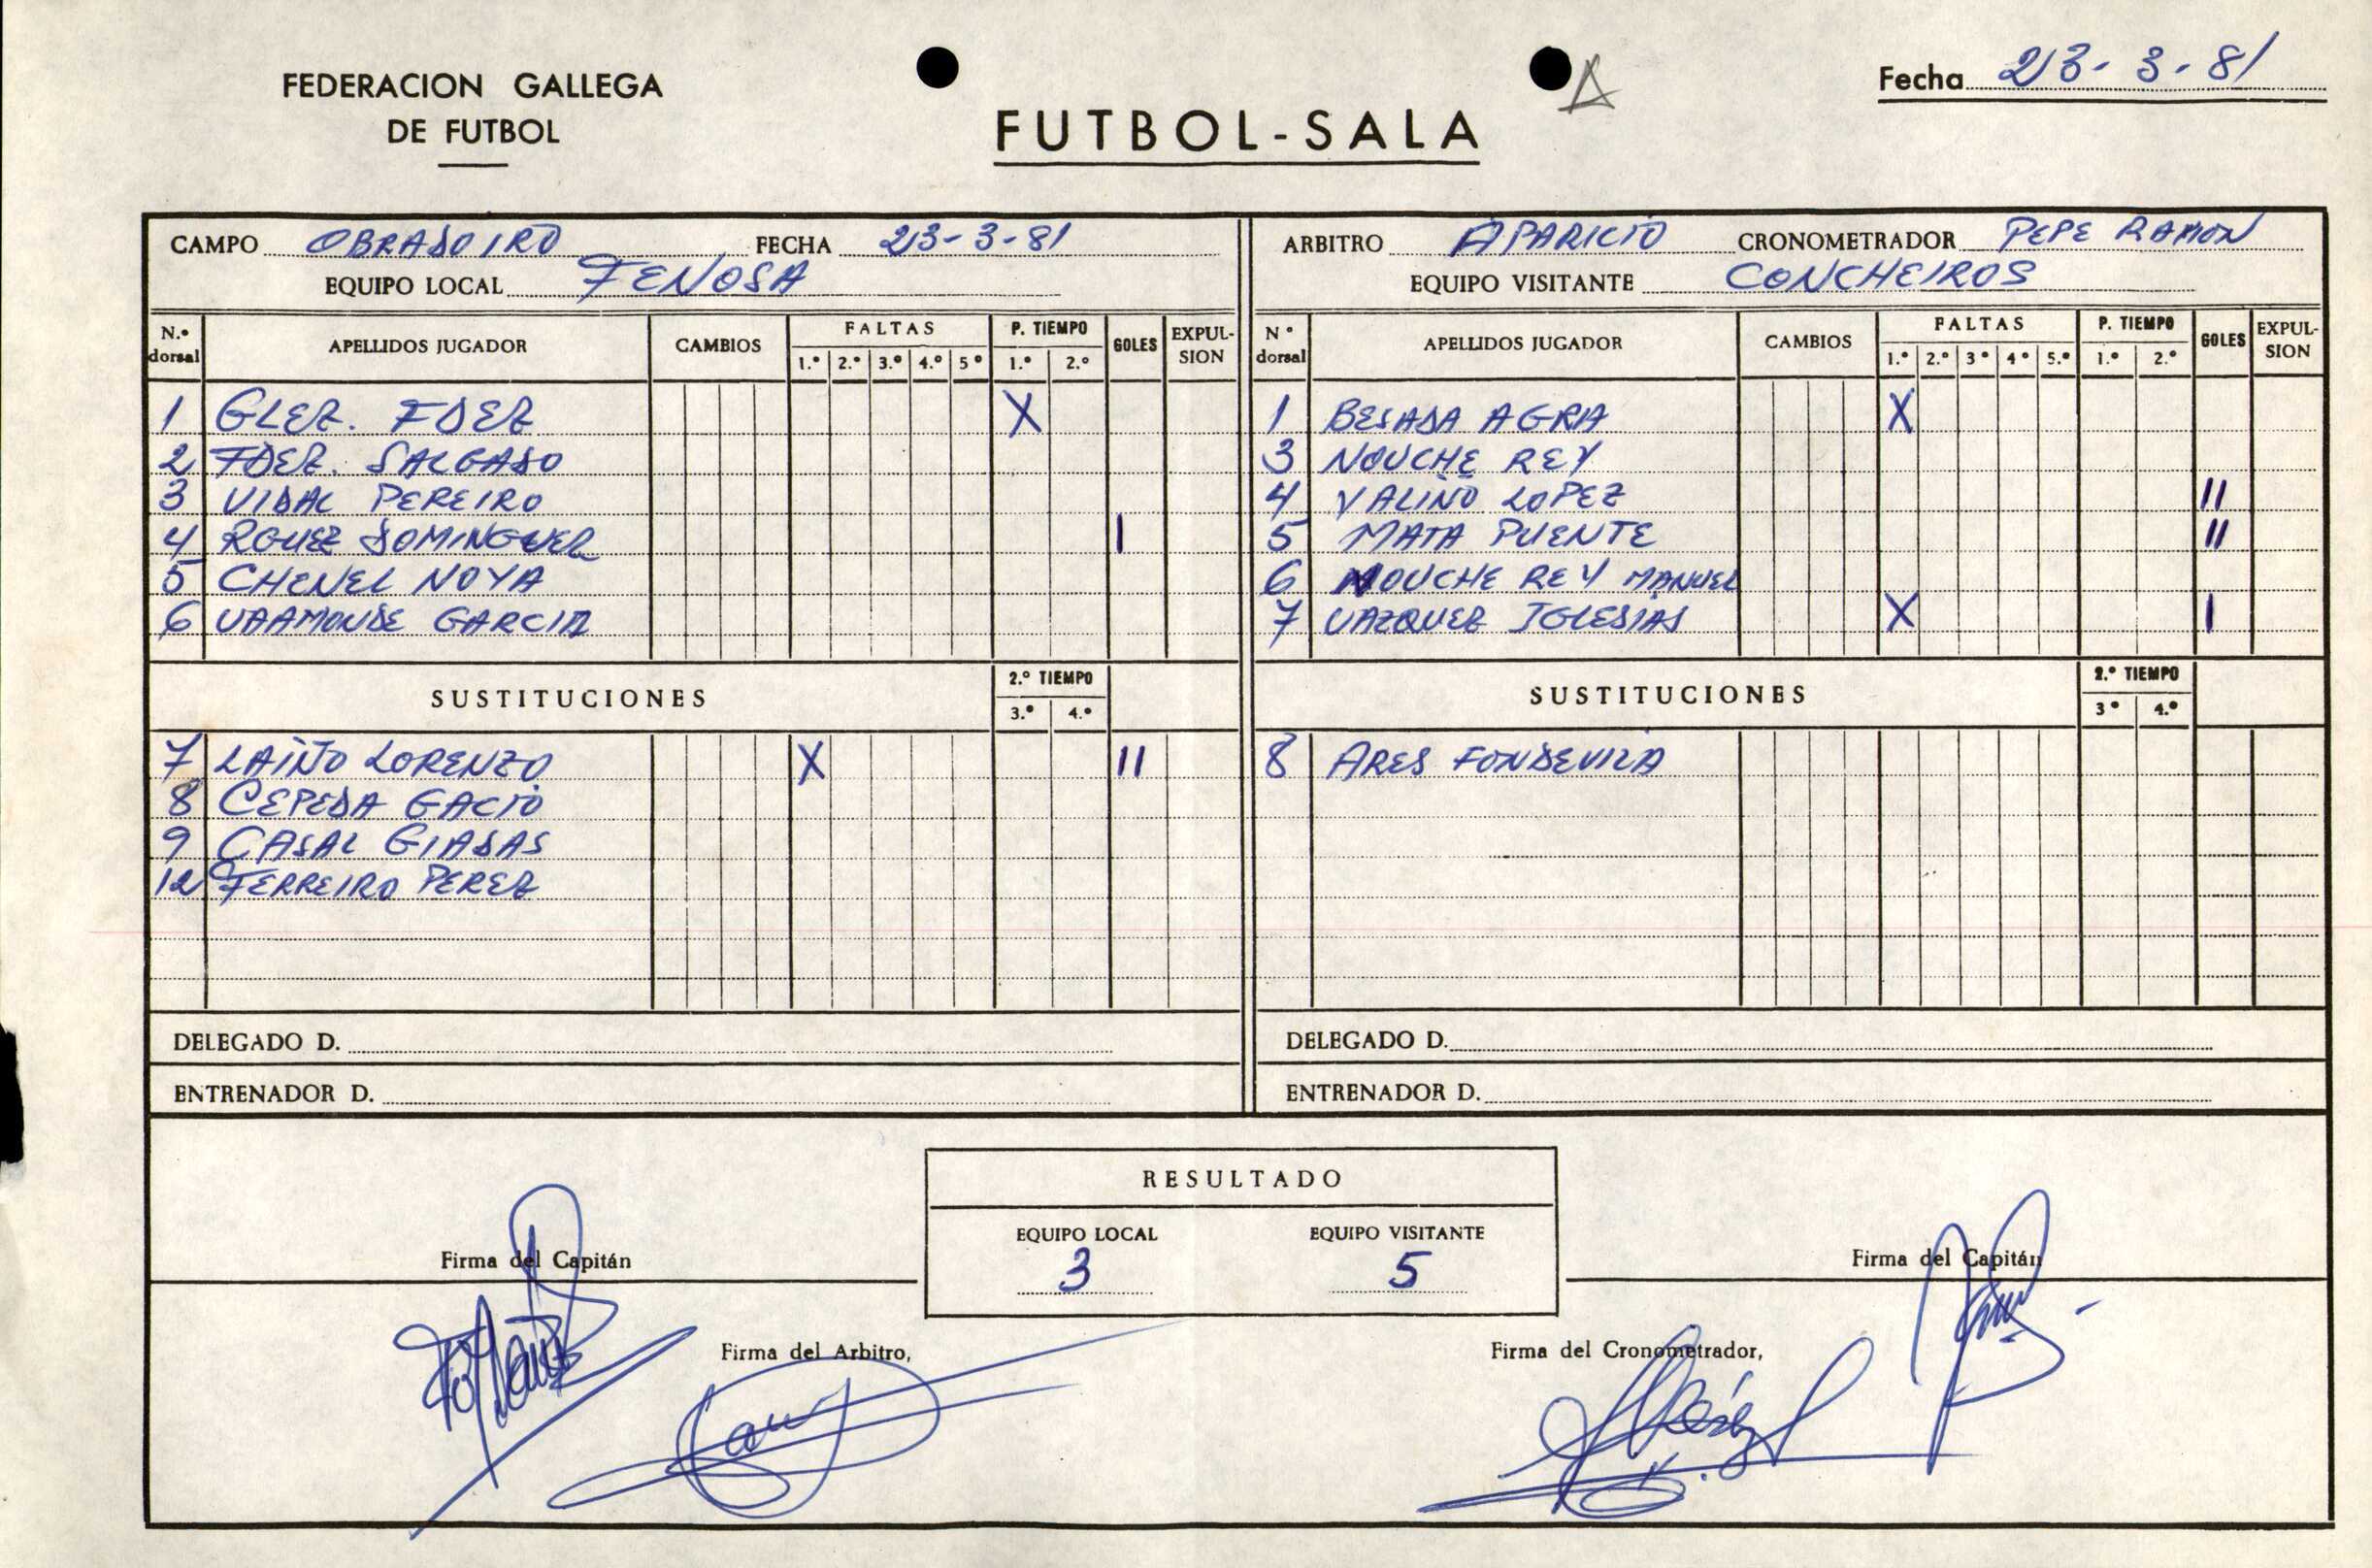 FEDERACION GALLEGA
DE FUTBOL
FUTBOL-SALA
Fecha 23-3-81
CAMPO OBRADOIRO FECHA 23-3-81
EQUIPO LOCAL FENOSA
N.º dorsal APELLIDOS JUGADOR CAMBIOS FALTAS 1.º 2.º 3.º 4.º 5º P. TIEMPO 1.º 2.º GOLES EXPULSION
1 GLEZ. FDEZ X
2 FDEZ. SALGADO
3 VIDAL PEREIRO
4 RGUEZ DOMINGUEZ I
5 CHENEL NOYA
6 VAAMONDE GARCIA
SUSTITUCIONES 2.º TIEMPO 3.º 4.º
7 LAIÑO LORENZO X II
8 CEPEDA GACIO
9 CASAL GIADAS
12 FERREIRO PEREZ
DELEGADO D.
ENTRENADOR D.
ARBITRO APARICIO CRONOMETRADOR PEPE RAMON
EQUIPO VISITANTE CONCHEIROS
Nº dorsal APELLIDOS JUGADOR CAMBIOS FALTAS 1.º 2.º 3º 4º 5.º P. TIEMPO 1.º 2.º GOLES EXPULSION
1 BESADA AGRA X
3 NOUCHE REY
4 VALIÑO LOPEZ II
5 MATA PUENTE II
6 NOUCHE REY MANUEL
7 VAZQUEZ IGLESIAS X I
SUSTITUCIONES 2.º TIEMPO 3º 4.º
8 ARES FONDEVILA
DELEGADO D.
ENTRENADOR D.
RESULTADO
EQUIPO LOCAL EQUIPO VISITANTE
3 5
Firma del Capitán
Firma del Capitán
Firma del Arbitro,
Firma del Cronometrador,